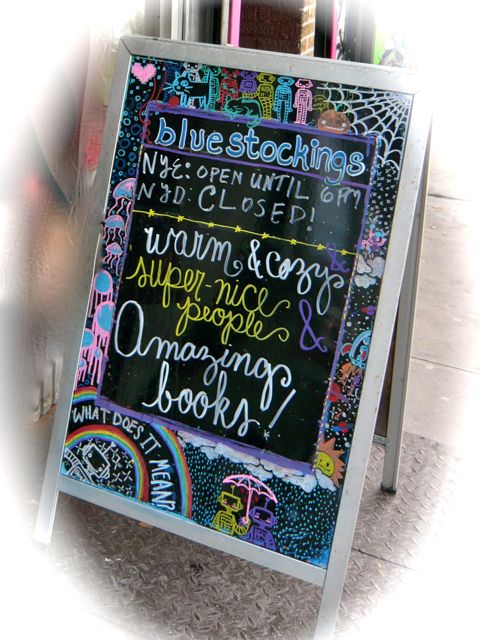 bluestockings
NYE: OPEN UNTIL 6PM
NYD: CLOSED!
warm & cozy &
super-nice
people &
Amazing
books!
WHAT DOES IT MEAN?